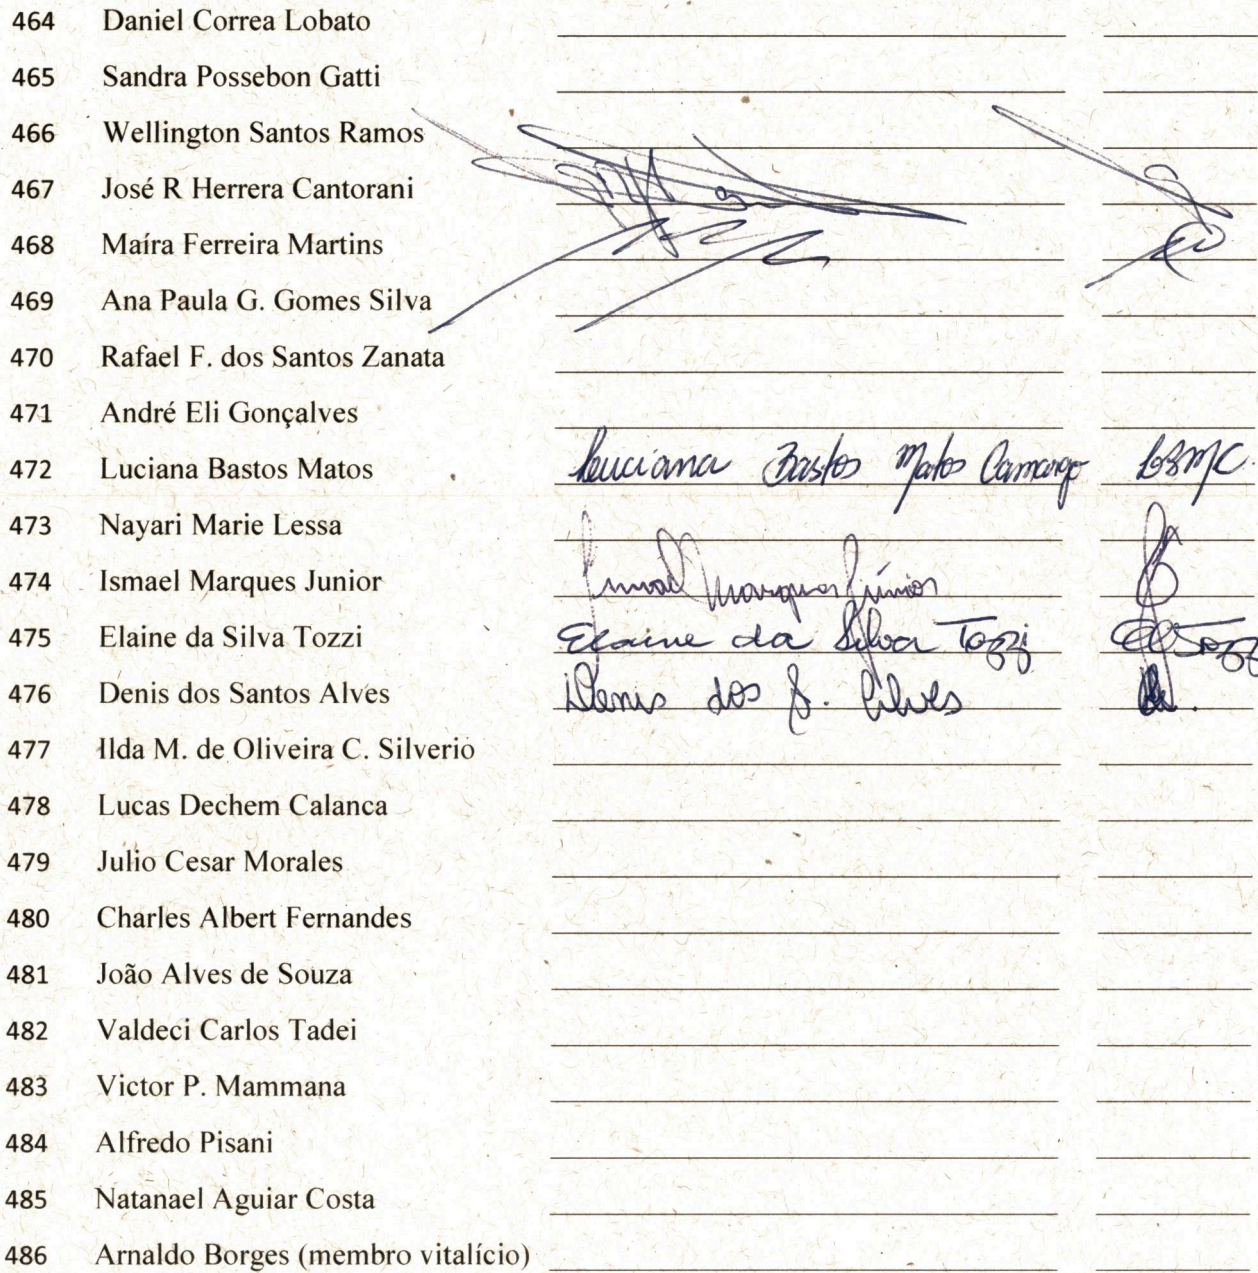 464 Daniel Correa Lobato
465 Sandra Possebon Gatti
466 Wellington Santos Ramos
467 José R Herrera Cantorani
468 Maíra Ferreira Martins
469 Ana Paula G. Gomes Silva
470 Rafael F. dos Santos Zanata
471 André Eli Gonçalves
472 Luciana Bastos Matos Luciana Bastos Matos Camargo LBMC.
473 Nayari Marie Lessa
474 Ismael Marques Junior Ismael Marques Júnior
475 Elaine da Silva Tozzi Elaine da Silva Tozzi
476 Denis dos Santos Alves Denis dos S. Alves
477 Ilda M. de Oliveira C. Silverio
478 Lucas Dechem Calanca
479 Julio Cesar Morales
480 Charles Albert Fernandes
481 João Alves de Souza
482 Valdeci Carlos Tadei
483 Victor P. Mammana
484 Alfredo Pisani
485 Natanael Aguiar Costa
486 Arnaldo Borges (membro vitalício)